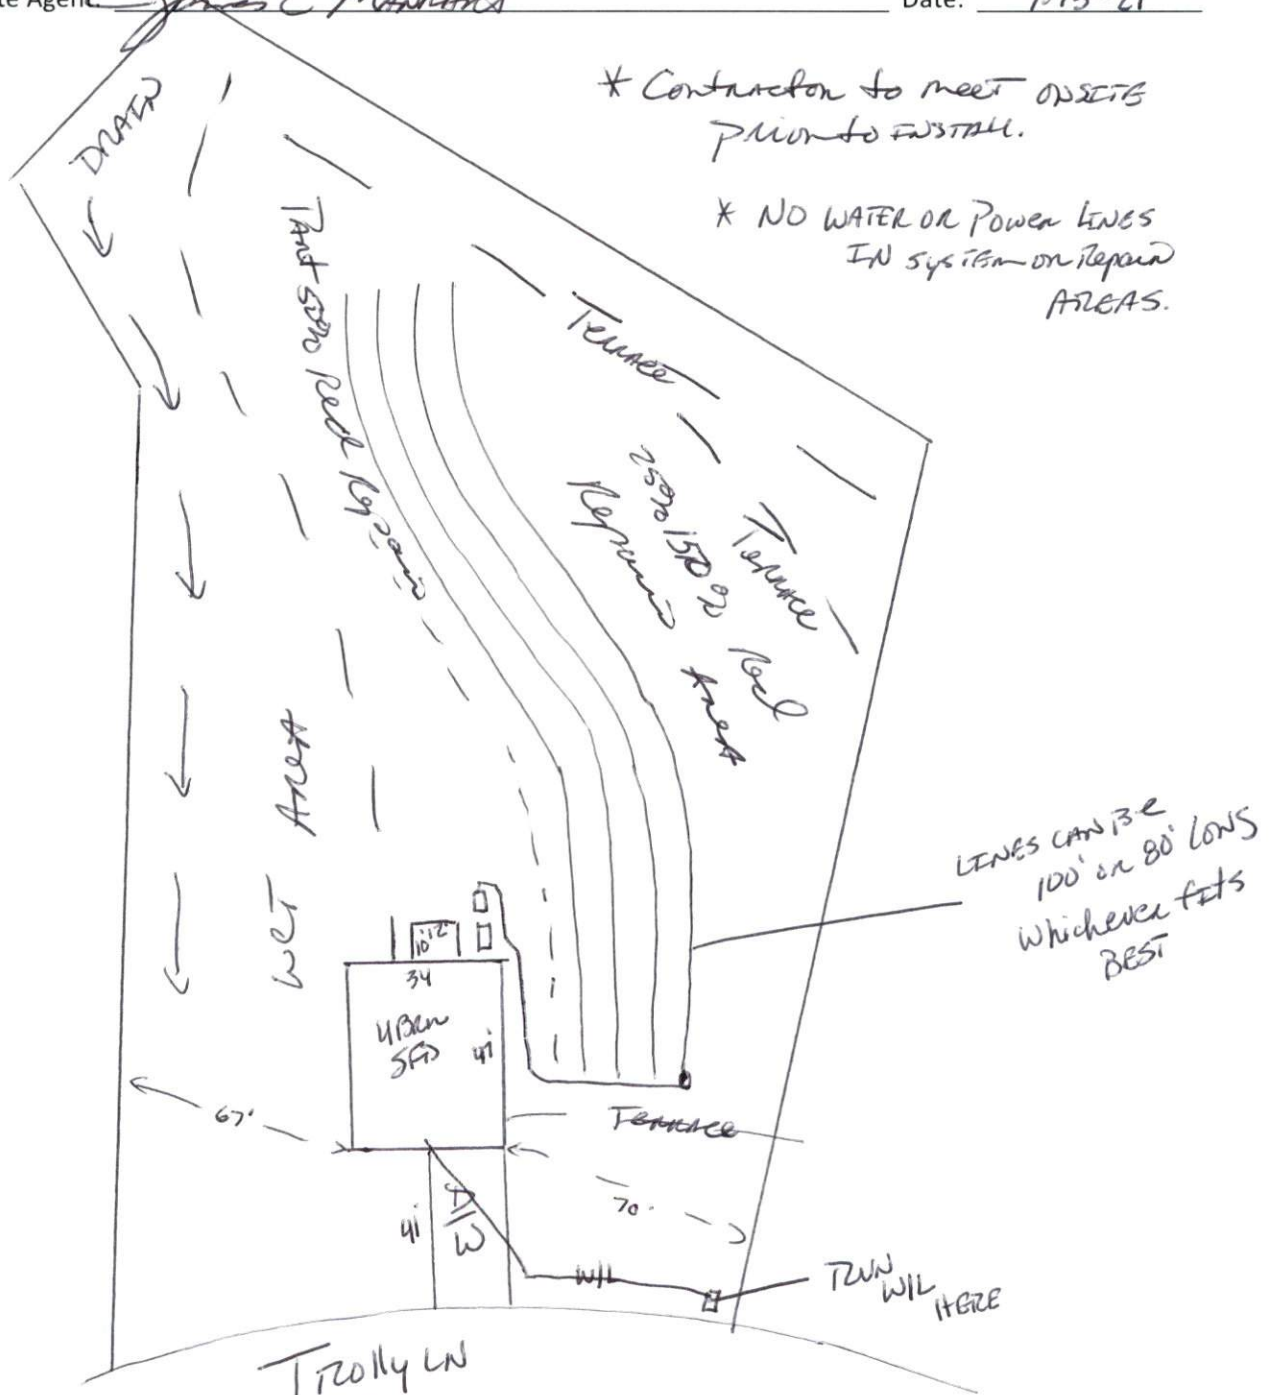 te Agent: James E Manhart
Date:
* Contractor to meet ONSITE
prior to INSTALL.
* NO WATER OR Power LINES
IN system or Repair
AREAS.
DRAIN
Part 50% Red Repair
Terrace
Terrace
25% 150% Red
Repair Area
WET AREA
LINES CAN BE
100' or 80' LONG
Whichever fits
BEST
10 12
34
4 Brm
SFD
41
67'
Terrace
70'
41
D/W
W/L
RUN
W/L
HERE
Trolly LN